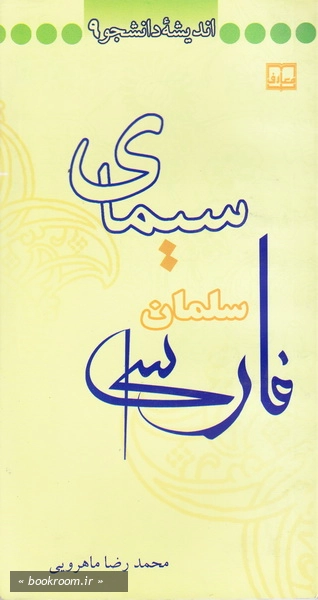 اندیشهٔ دانشجو ۹
معارف
سیمای
سلمان
فارسی
محمد رضا ماهرویی
« bookroom.ir »